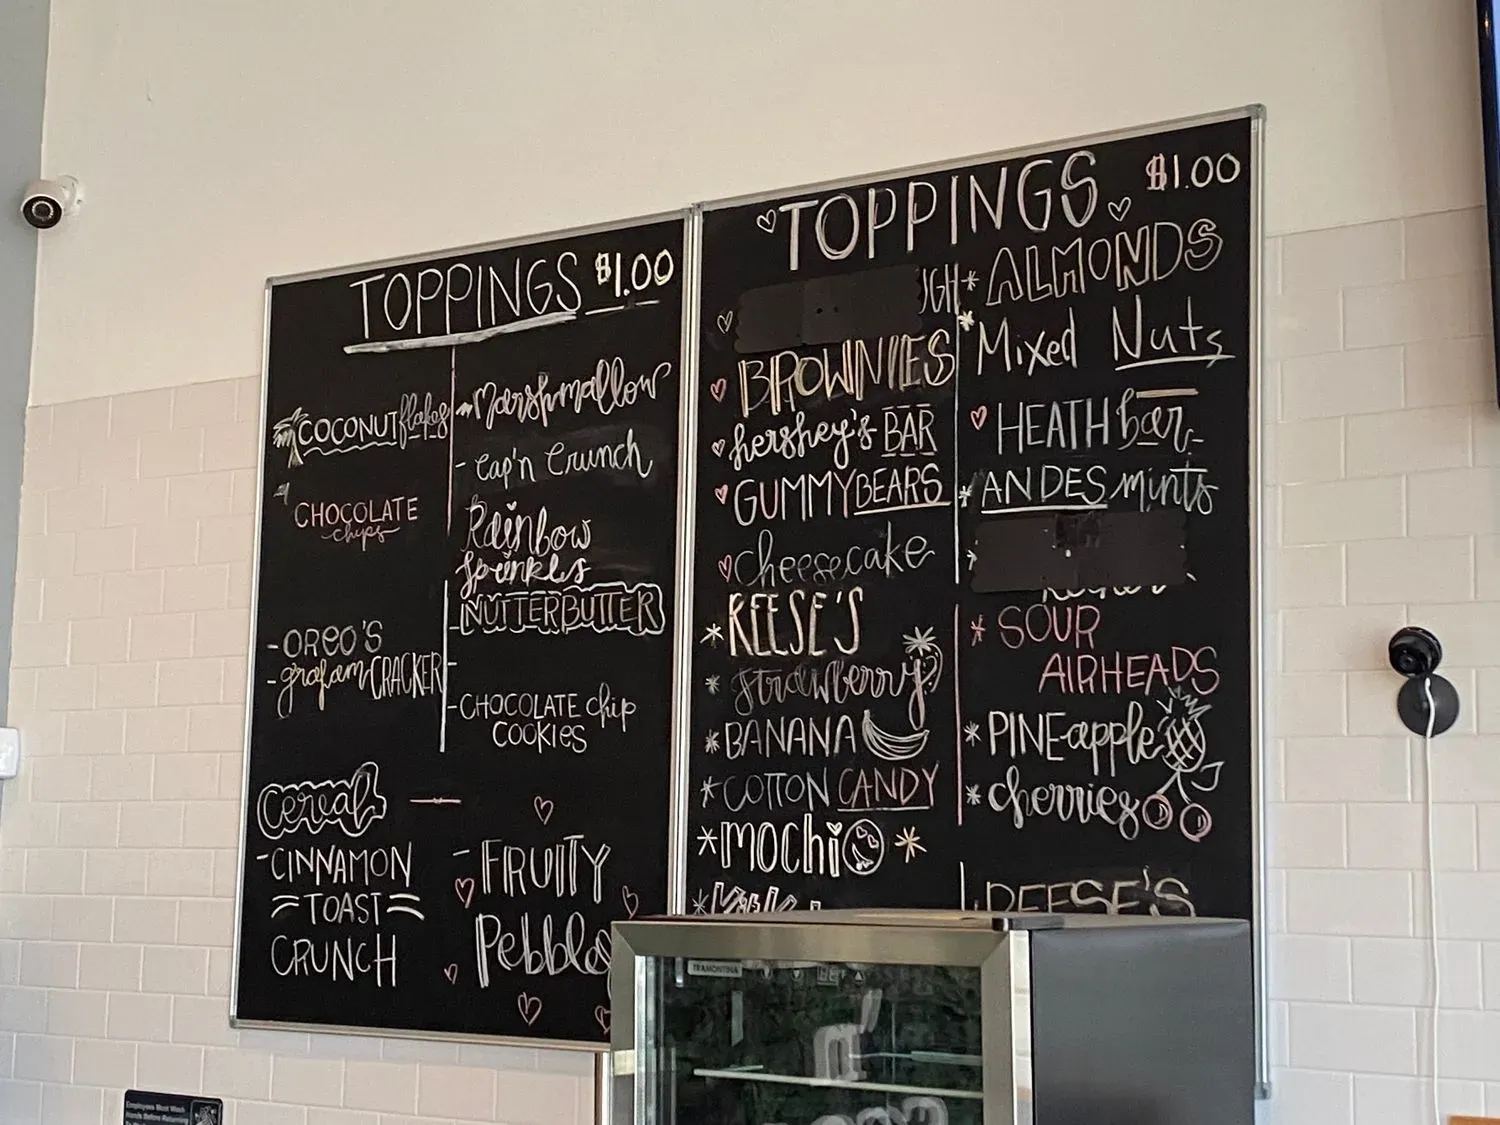 TOPPINGS $1.00
COCONUT flakes
CHOCOLATE
chips
-OREO'S
-graham CRACKER
cereal
-CINNAMON
TOAST
CRUNCH
-Marshmallow
-Cap'n Crunch
Rainbow
Sprinkles
-NUTTERBUTTER
-
-CHOCOLATE chip
COOKIES
-FRUITY
Pebbles
TOPPINGS $1.00
BROWNIES
hershey's BAR
GUMMY BEARS
cheesecake
*REESE'S
*strawberry
*BANANA
*COTTON CANDY
*mochi
*ALMONDS
*Mixed Nuts
HEATH bar
*ANDES mints
*SOUR
AIRHEADS
*PINE-apple
*cherries
REESE'S
TRAMONTINA
Employees Must Wash
Hands Before Returning